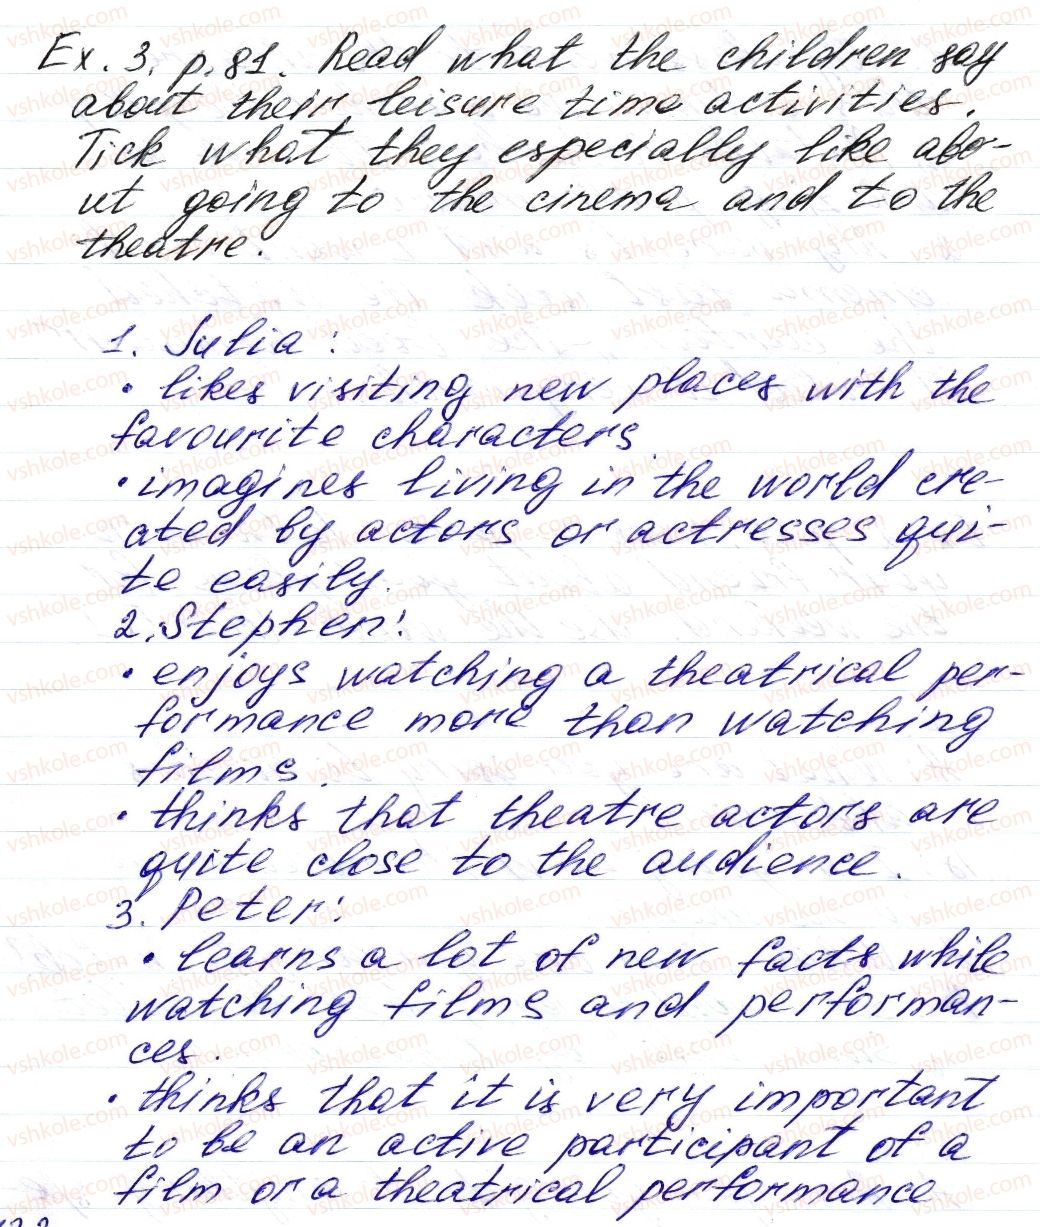 Ex. 3. p. 81. Read what the children say
about their leisure time activities.
Tick what they especially like abo-
ut going to the cinema and to the
theatre.
1. Julia:
• likes visiting new places with the
favourite characters
• imagines living in the world cre-
ated by actors or actresses qui-
te easily.
2. Stephen:
• enjoys watching a theatrical per-
formance more than watching
films.
• thinks that theatre actors are
quite close to the audience.
3. Peter:
• learns a lot of new facts while
watching films and performan-
ces.
• thinks that it is very important
to be an active participant of a
film or a theatrical performance